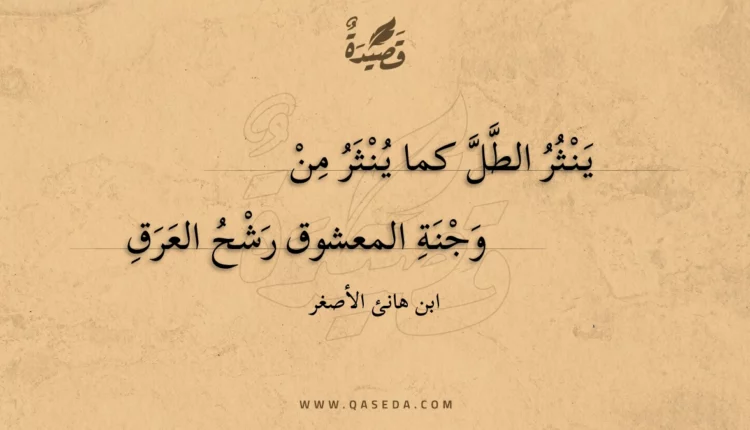 قَصِيْدَةٌ
يَنْثُرُ الطَّلَّ كما يُنْثَرُ مِنْ
وَجْنَةِ المعشوق رَشْحُ العَرَقِ
ابن هانئ الأصغر
WWW.QASEDA.COM